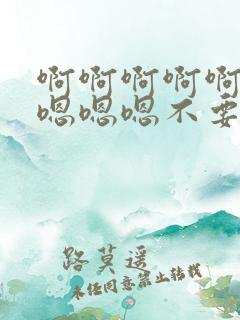 啊啊啊啊啊
嗯嗯嗯不要
路莫遥
未经同意禁止转载